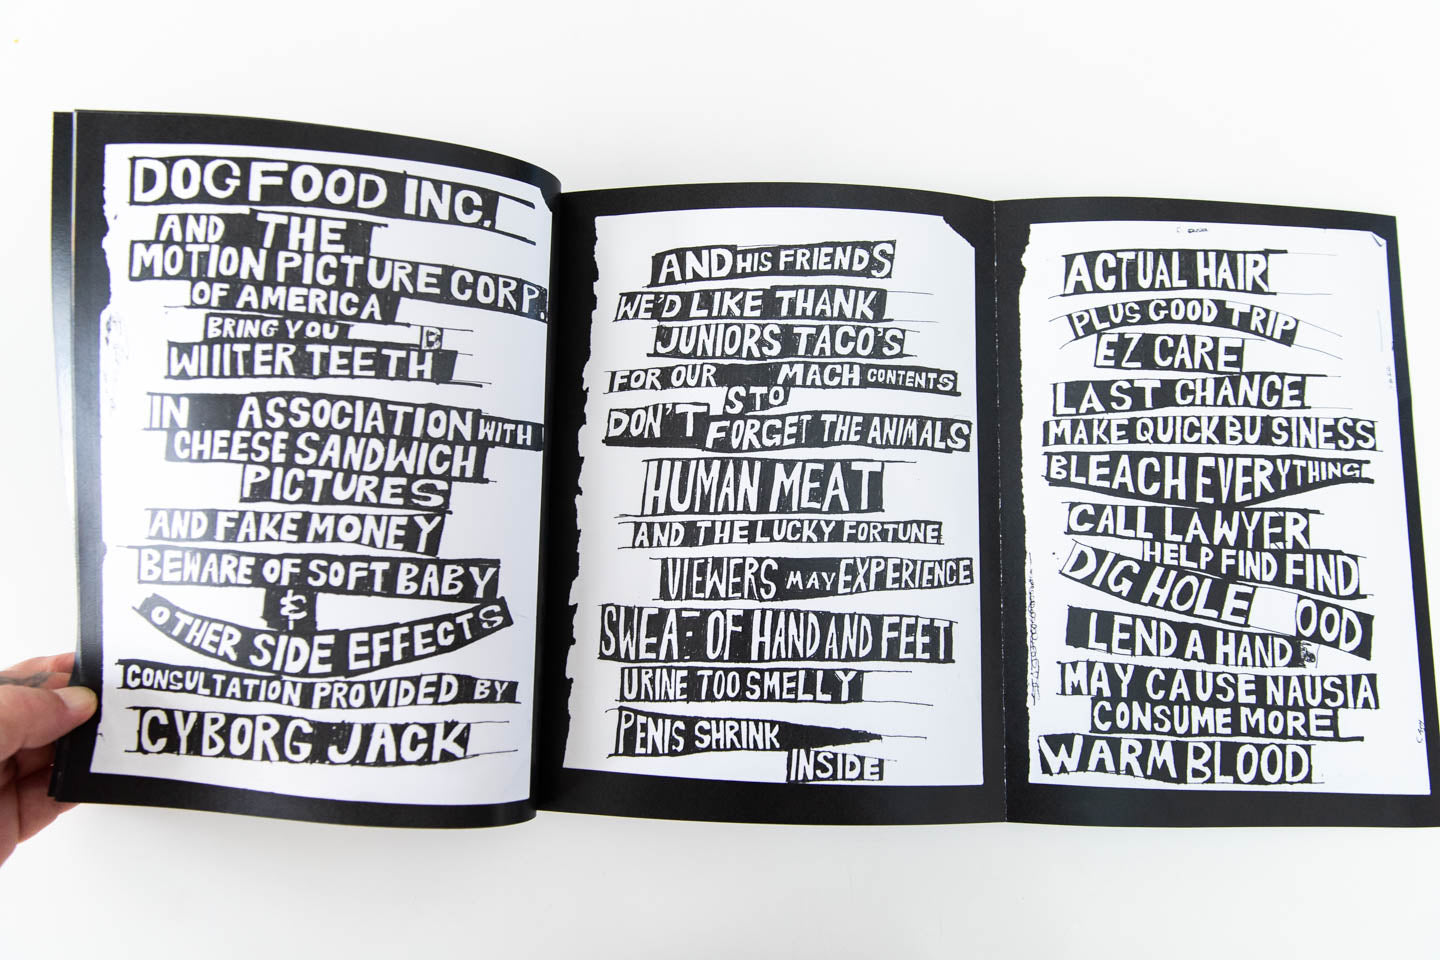 DOGFOOD INC.
AND THE
MOTION PICTURE CORP.
OF AMERICA
BRING YOU
WIIITER TEETH
IN ASSOCIATION WITH
CHEESE SANDWICH
PICTURES
AND FAKE MONEY
BEWARE OF SOFT BABY
&
OTHER SIDE EFFECTS
CONSULTATION PROVIDED BY
CYBORG JACK
AND HIS FRIENDS
WE'D LIKE THANK
JUNIORS TACO'S
FOR OUR STOMACH CONTENTS
DON'T FORGET THE ANIMALS
HUMAN MEAT
AND THE LUCKY FORTUNE
VIEWERS MAY EXPERIENCE
SWEAT OF HAND AND FEET
URINE TOO SMELLY
PENIS SHRINK
INSIDE
ACTUAL HAIR
PLUS GOOD TRIP
EZ CARE
LAST CHANCE
MAKE QUICK BU SINESS
BLEACH EVERYTHING
CALL LAWYER
HELP FIND FIND
DIG HOLE OOD
LEND A HAND
MAY CAUSE NAUSIA
CONSUME MORE
WARM BLOOD